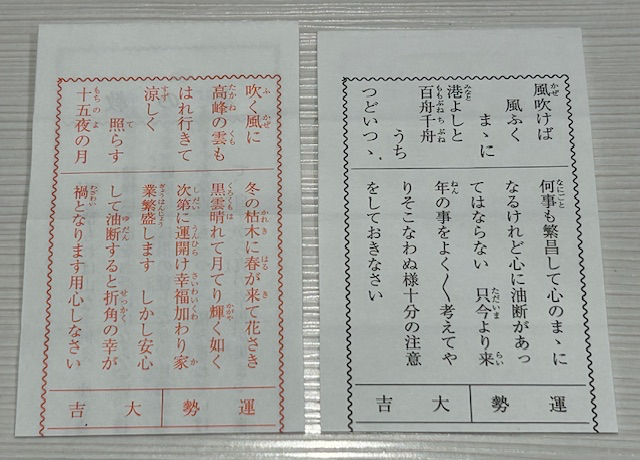 風吹けば
風ふく
まゝに
港よしと
百舟千舟
うち
つどいつゝ、
何事も繁昌して心のまゝに
なるけれど心に油断があっ
てはならない 只今より来
年の事をよく〱考えてや
りそこなわぬ様十分の注意
をしておきなさい
運勢
大吉
吹く風に
高峰の雲も
はれ行きて
涼しく
照らす
十五夜の月
冬の枯木に春が来て花さき
黒雲晴れて月てり輝く如く
次第に運開け幸福加わり家
業繁盛します しかし安心
して油断すると折角の幸が
禍となります用心しなさい
運勢
大吉